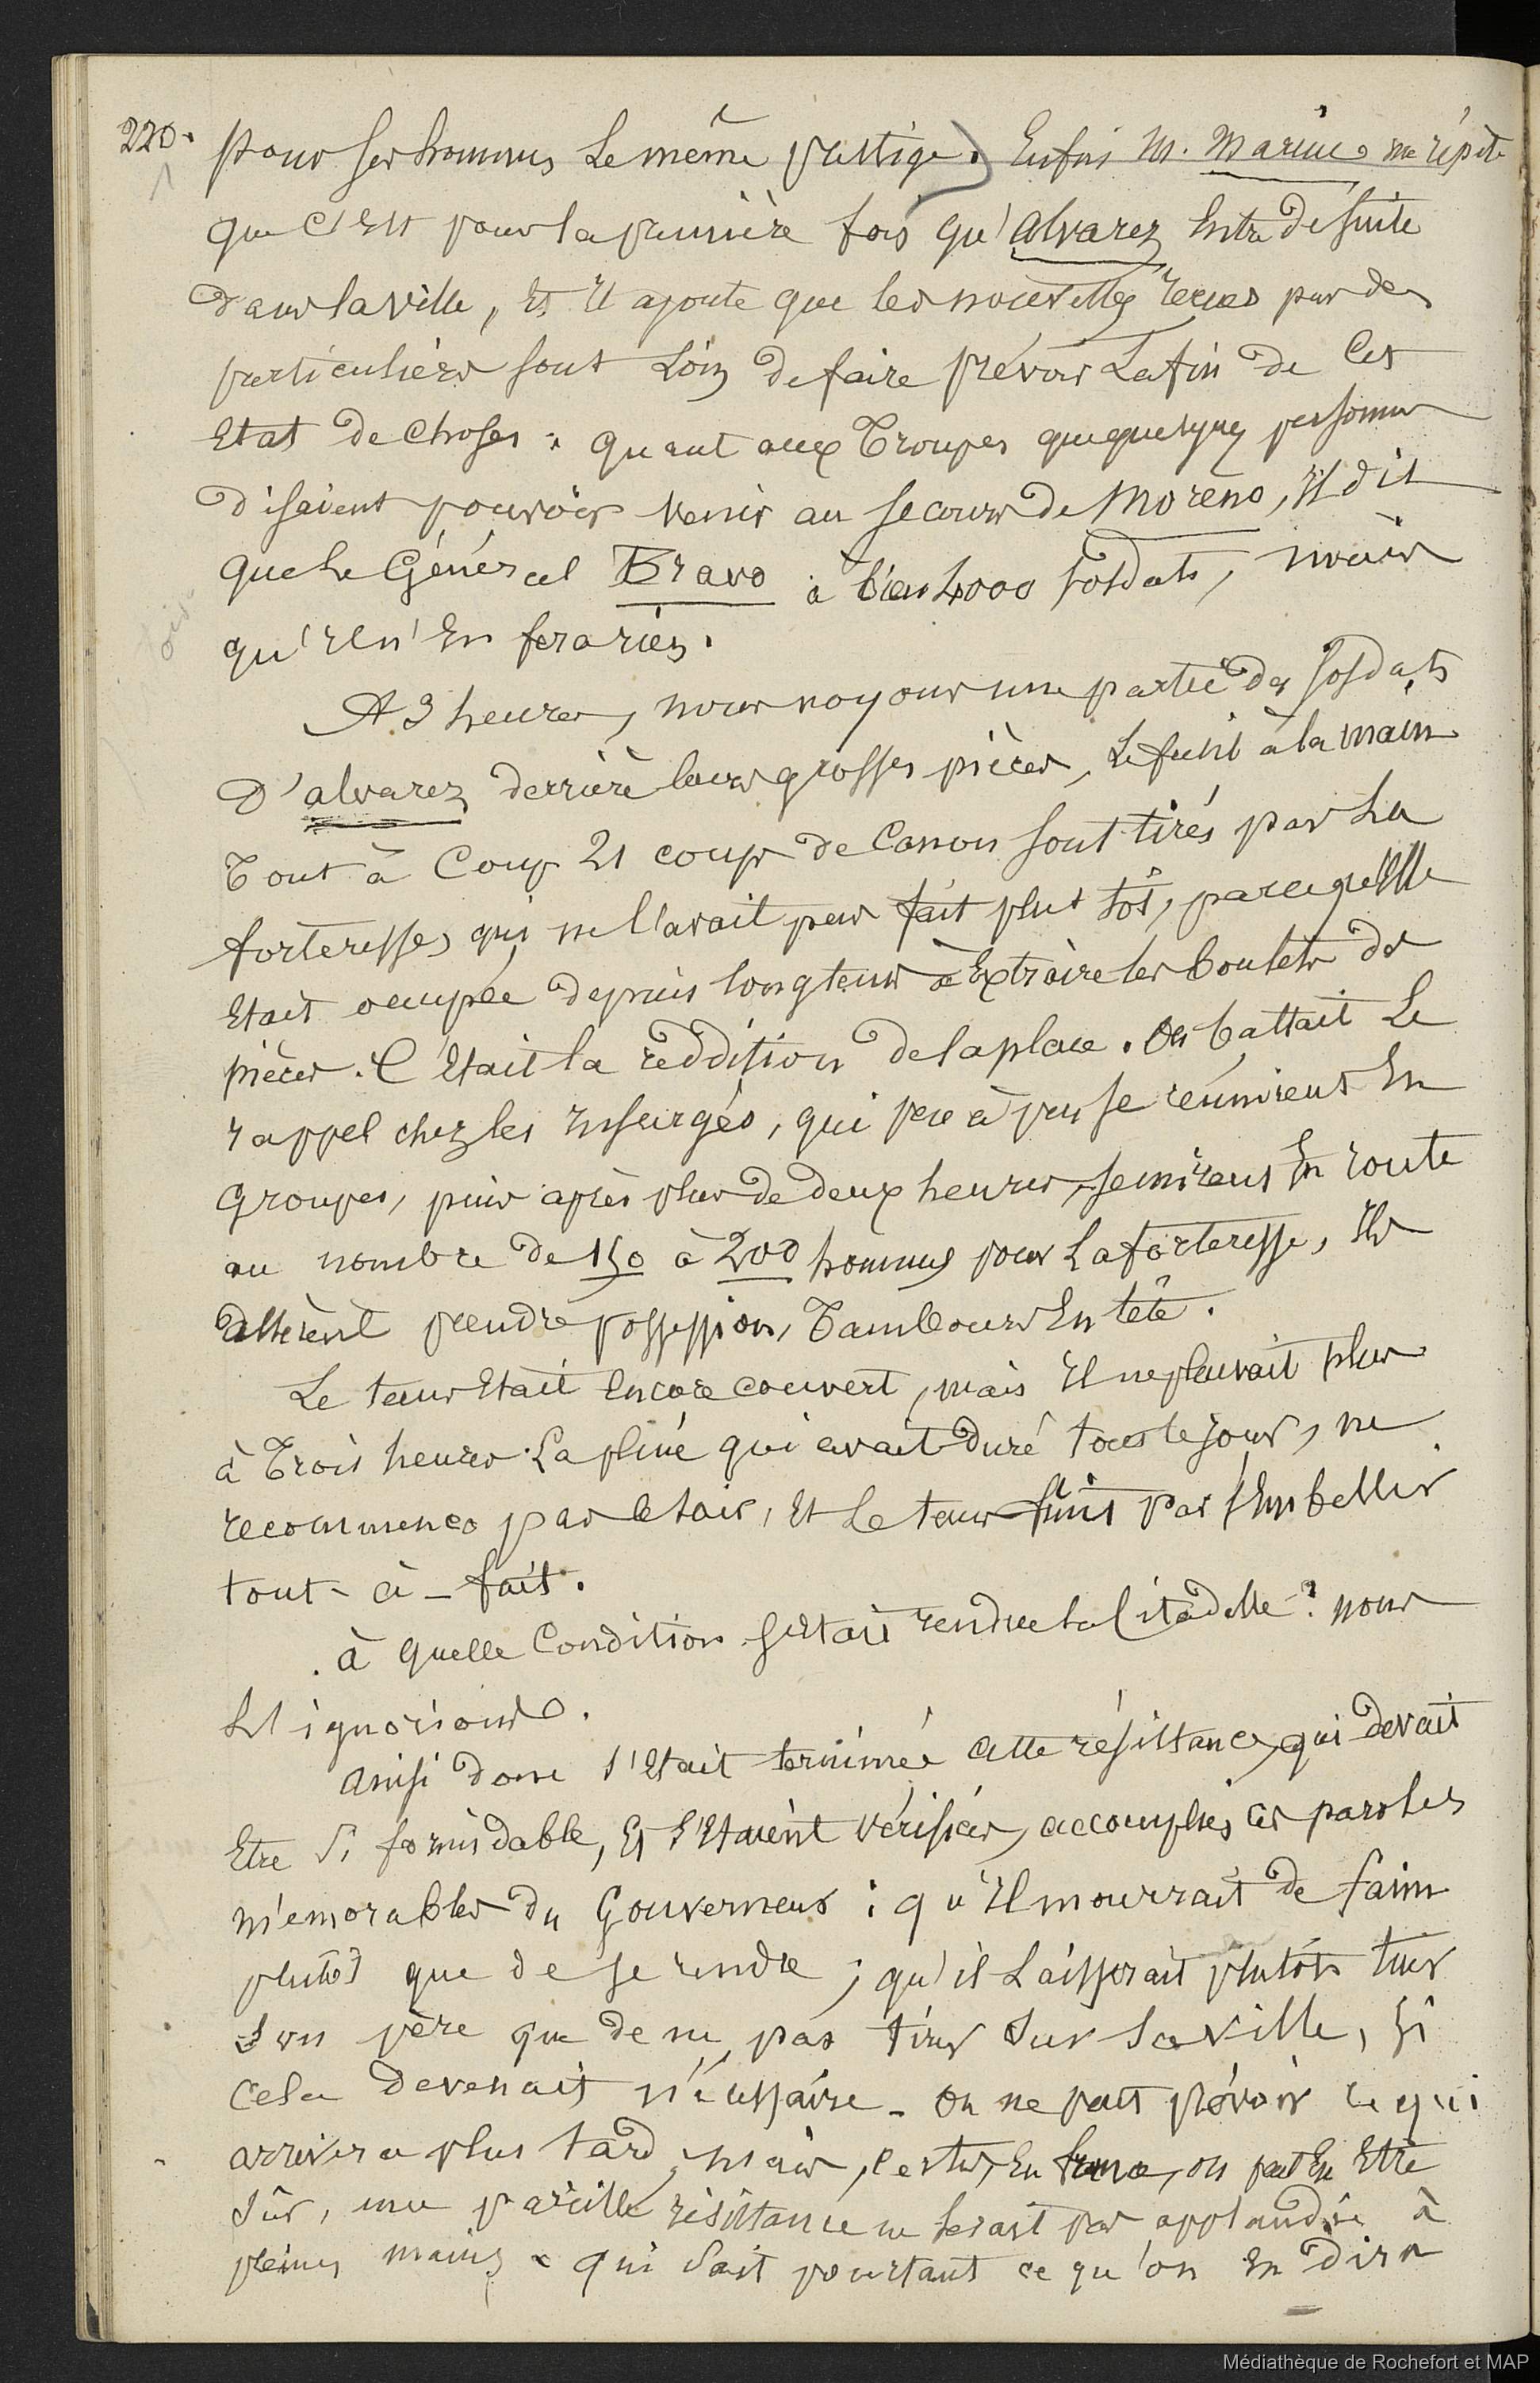 220. pour ses hommes le même prestige. Enfin M. Marin me répète
que c'est pour la première fois qu'Alvarez entre de suite
dans la ville, et il ajoute que les nouvelles reçues par des
particuliers sont loin de faire prévoir la fin de cet
Etat de choses. quant aux Troupes que quelques personnes
disaient pouvoir venir au secours de Moreno, il dit
que le Général Bravo a bien 4000 soldats, mais
qu'il n'en fera rien.
A 3 heures, nous voyons une partie des soldats
d'alvarez derrière leurs grosses pièces, le fusil à la main
Tout à Coup 21 coups de Canon sont tirés par la
forteresse, qui ne l'avait pas fait plus tôt, parce qu'elle
était occupée depuis longtems à extraire les boulets des
pièces. C'était la reddition de la place. On battait le
rappel chez les insurgés, qui peu à peu se réunirent en
groupes, puis après plus de deux heures, se mirent en route
au nombre de 150 à 200 hommes pour la forteresse, ils
allèrent prendre possession, Tambours en tête.
Le tems était encore couvert, mais il ne pleuvait plus
à Trois heures. La pluie qui avait duré tout le jour, ne
recommença pas le soir, et le tems finit par s'embellir
tout-à-fait.
à quelle Condition s'était rendue la Citadelle? nous
l'ignorions.
ainsi donc s'était terminée cette résistance, qui devait
être si formidable, et s'étaient vérifiées, accomplies ces paroles
mémorables du Gouverneur : qu'il mourrait de faim
plutôt que de se rendre ; qu'il laisserait plutôt tuer
son père que de ne pas tirer sur la ville, si
cela devenait nécessaire - On ne peut prévoir ce qui
arrivera plus tard, mais, certes, en france, on peut en être
sûr, une pareille résistance ne serait pas applaudie à
pleines mains. qui sait pourtant ce qu'on en dira
Médiathèque de Rochefort et MAP